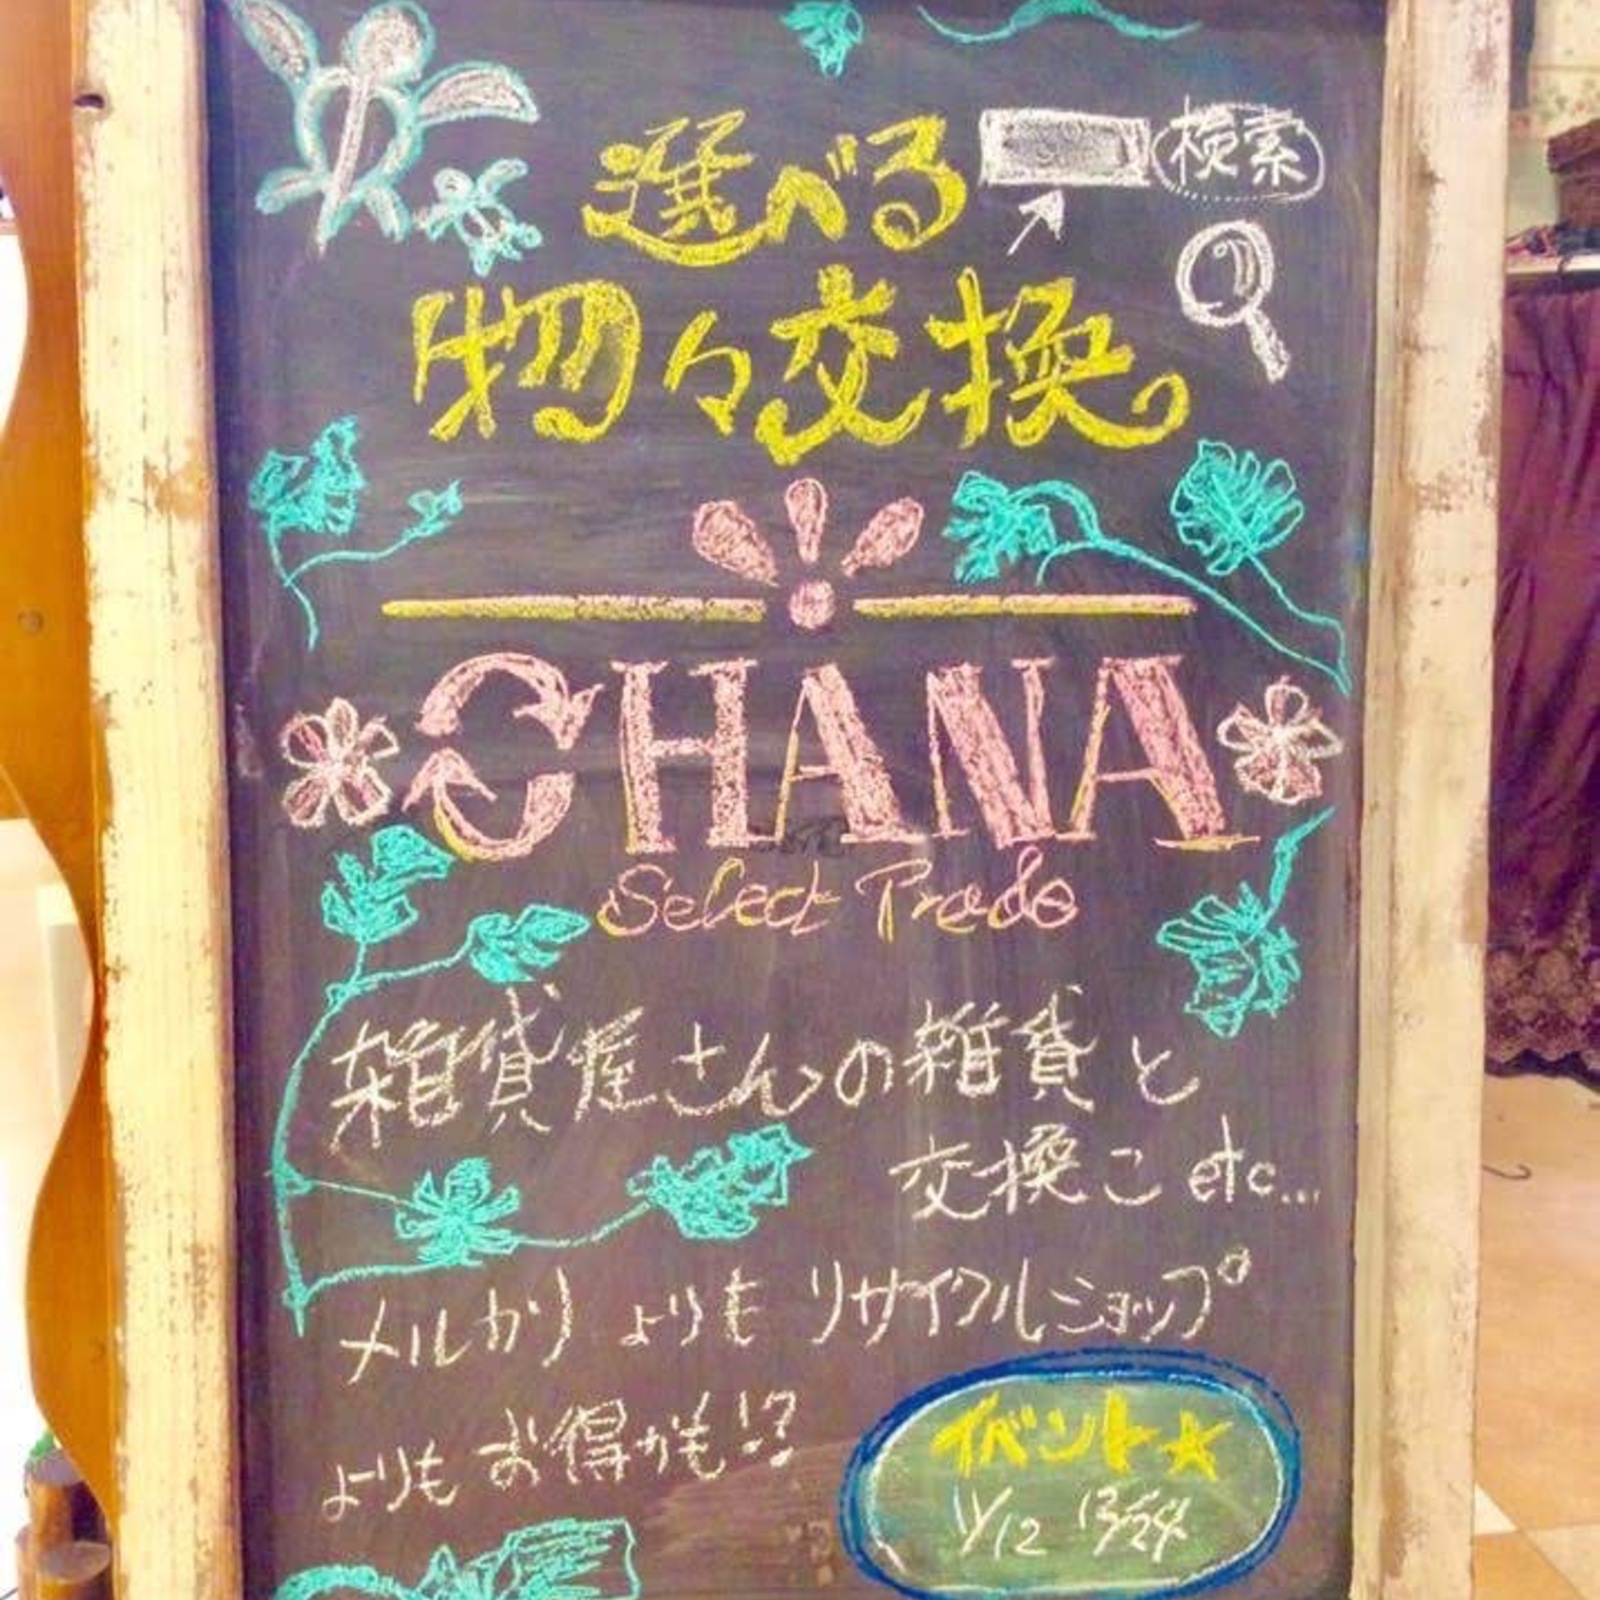 選べる 検索
物々交換。
OHANA
Select Trade
雑貨屋さんの雑貨と
交換こ etc...
メルカリ よりも リサイクルショップ
よりも お得かも!?
イベント☆
11/12 12/24